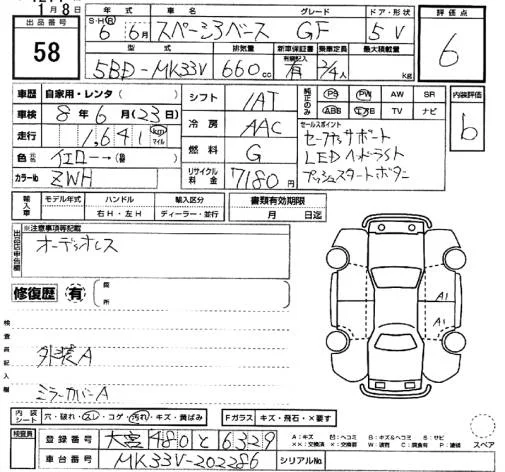 月 8 日
出品番号
58
年式 車名 グレード ドア・形状
S・H・R 6年 6月 スペーシアベース GF 5 V
型式 排気量 新車保証書 乗車定員 最大積載量
有無記入
5BD-MK33V 660cc 有 2/4人 kg
評価点
6
内装評価
b
車歴 自家用・レンタ( )
車検 8年 6月(23日)
走行 1,641 km マイル
色 イエロー→( )
カラーNo ZWH
シフト IAT
冷房 AAC
燃料 G
リサイクル料金 7180円
純正のみ
PS PW AW SR
ABS エアB TV ナビ
セールスポイント
セーフティサポート
LEDヘッドライト
プッシュスタートボタン
輸入車 モデル年式 ハンドル 輸入区分
右H・左H ディーラー・並行
書類有効期限
月 日迄
出品店申告欄
※注意事項等記載
オーディオレス
修復歴 有
箇所
検査員記入欄
外装A
ミラーカバーA
A1
A1
内装シート 穴・破れ・スレ・コゲ・汚れ・キズ・黄ばみ
Fガラス キズ・飛石・×要す
検査員
登録番号 大宮 480 と 6329
車台番号 MK33V-202286
シリアルNo.
A:キズ U:ヘコミ B:キズ&ヘコミ S:サビ
XX:交換済 X:交換要 W:波有 C:腐食有 P:塗装
スペア